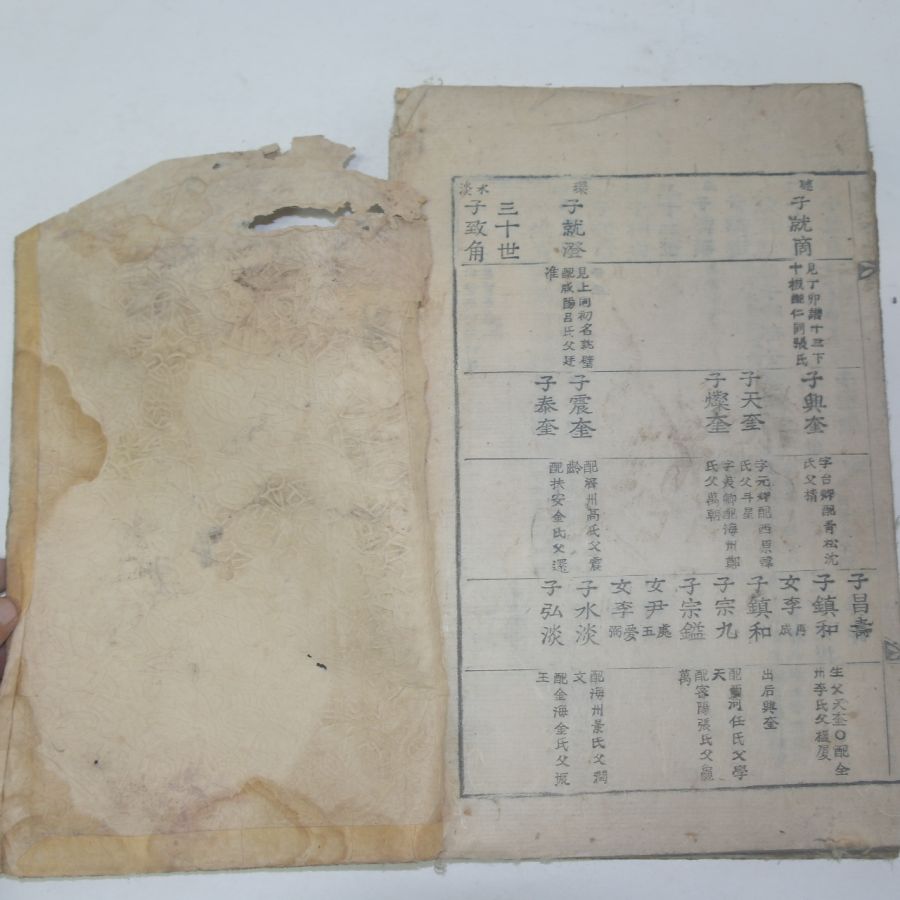 子就商
見丁卯譜十三下
十板配仁同張氏
子興奎
字台卿配青松沈
氏父楨
子昌壽
子鎮和
生父天奎〇配全
州李氏父
女李再成
子天奎
字元卿配西原韓
氏父斗星
子鎮和
出后興奎
子燦奎
字美卿配海州鄭
氏父萬朝
子宗九
配河任氏父學
天
子宗鎰
配密陽張氏父
萬
女尹處五
女李愛弼
環
子就澄
見上同初名就璧
配咸陽呂氏父廷
准
子震奎
配濟州高氏父震
齡
子水淡
配海州景氏父潤
文
子泰奎
配扶安金氏父還
子弘淡
配金海金氏父振
王
三十世
水淡
子致角